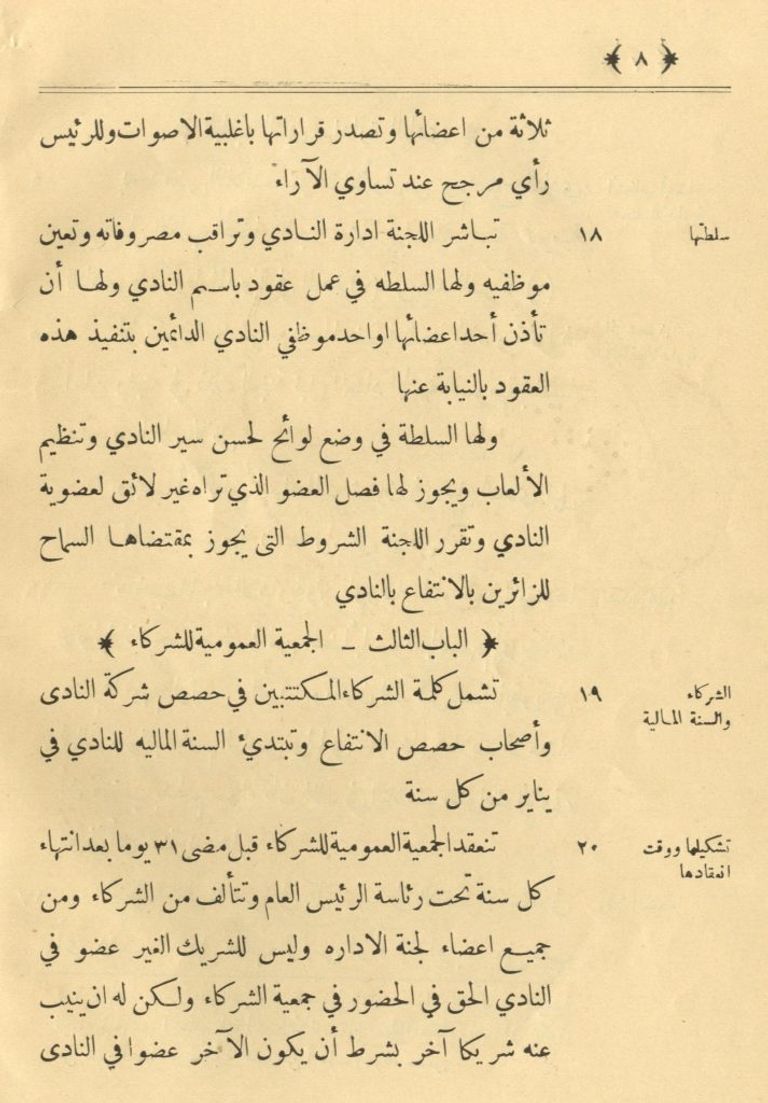 ﴿ ٨ ﴾
ثلاثة من اعضائها وتصدر قراراتها باغلبية الاصوات وللرئيس
رأي مرجح عند تساوي الآراء
سلطتها ١٨ تباشر اللجنة ادارة النادي وتراقب مصروفاته وتعين
موظفيه ولها السلطه في عمل عقود باسم النادي ولها أن
تأذن أحد اعضائها او احد موظفي النادي الدائمين بتنفيذ هذه
العقود بالنيابة عنها
ولها السلطة في وضع لوائح لحسن سير النادي وتنظيم
الألعاب ويجوز لها فصل العضو الذي تراه غير لائق لعضوية
النادي وتقرر اللجنة الشروط التى يجوز بمقتضاها السماح
للزائرين بالانتفاع بالنادي
﴿ الباب الثالث – الجمعية العمومية للشركاء ﴾
الشركاء ١٩ تشمل كلمة الشركاء المكتتبين في حصص شركة النادى
والسنة المالية
وأصحاب حصص الانتفاع وتبتديء السنة الماليه للنادي في
يناير من كل سنة
تشكيلها ووقت ٢٠ تنعقد الجمعية العمومية للشركاء قبل مضى ٣١ يوما بعد انتهاء
انعقادها
كل سنة تحت رئاسة الرئيس العام وتتألف من الشركاء ومن
جميع اعضاء لجنة الاداره وليس للشريك الغير عضو في
النادي الحق في الحضور في جمعية الشركاء ولكن له ان ينيب
عنه شريكا آخر بشرط أن يكون الآخر عضوا في النادى